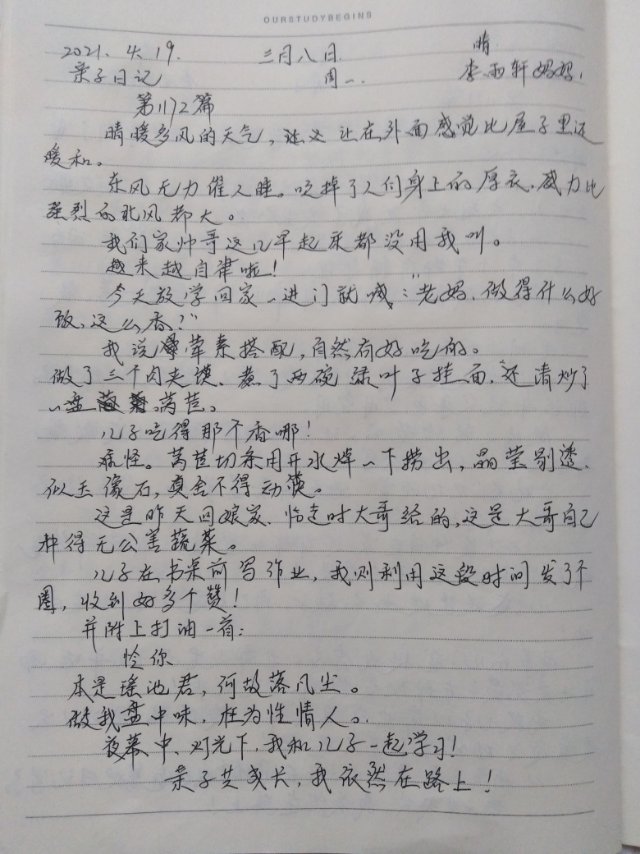 OURSTUDYBEGINS
2021. 4. 19. 三月八日 晴
亲子日记 周一. 李雨轩妈妈.
第1172篇
晴暖多风的天气, 让在外面感觉比屋子里还
暖和。
东风无力催人睡。吹掉了人们身上的厚衣, 威力比
强烈的北风都大。
我们家帅哥这几早起来都没用我叫。
越来越自律啦!
今天放学回家, 一进门就喊:“老妈, 做得什么好
饭, 这么香?”
我说荤素搭配, 自然有好吃的。
做了三个肉夹馍、煮了两碗绿叶子挂面, 还清炒了
一盘莴苣。
儿子吃得那个香哪!
难怪。莴苣切条用开水焯一下捞出, 晶莹剔透、
似玉像石, 真舍不得动筷。
这是昨天回娘家, 临走时大哥给的, 这是大哥自己
种得无公害蔬菜。
儿子在书桌前写作业, 我则利用这段时间发了个
圈, 收到好多个赞!
并附上打油一首:
怜你
本是瑶池君, 何故落凡尘。
做我盘中味, 枉为性情人。
夜幕中, 灯光下, 我和儿子一起学习!
亲子共成长, 我依然在路上!